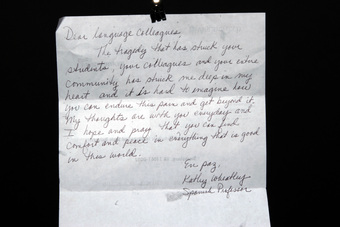 Dear Language Colleagues,
The tragedy that has struck your
students, your colleagues and your entire
community has struck me deep in my
heart and it is hard to imagine how
you can endure this pain and get beyond it.
My thoughts are with you everyday and
I hope and pray that you can find
comfort and peace in everything that is good
in this world.
En paz,
Kathy Wheatley
Spanish Professor